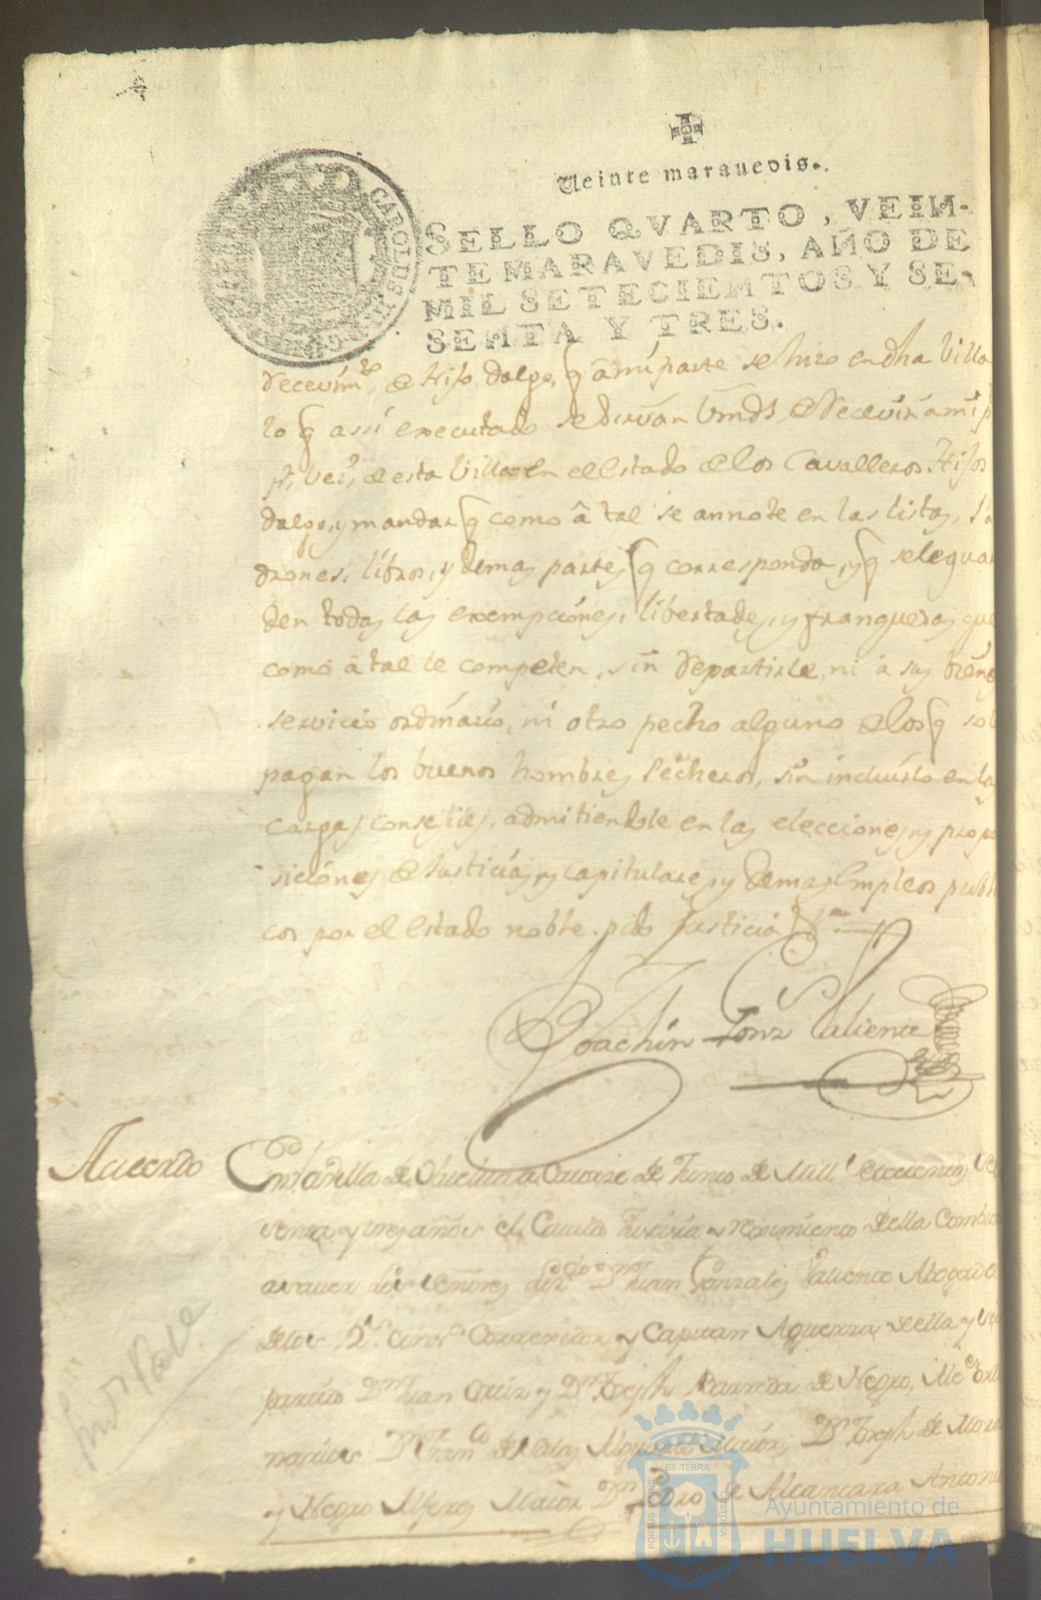 Veinte maravedis.
SELLO QVARTO, VEIN-
TE MARAVEDIS, AÑO DE
MIL SETECIENTOS Y SE-
SENTA Y TRES.
CAROLUS
de Hijo dalgo, q a mi parte se hizo en dha Villa
lo q assi executado se sirvan Vmds de recevir a mi
de esta Villa en el estado de los Cavalleros Hijos
dalgo, y mandar q como â tal se annote en las listas, Pa
drones, libros, y demas partes q corresponda, y q se le guar
den todas las exempciones, libertades, y franquezas que
como â tal le competen, sin repartirle, ni a sus bienes
servicio ordinario, ni otro pecho alguno de los q solo
pagan los buenos hombres Pecheros, sin incluirlo en las
cargas consejiles, admitiendole en las elecciones, y propo
siciones de Justicias, y capitulares, y demas Empleos publi
cos por el estado noble. pido Justicia
Joachin Gonz Valiente
Acuerdo
En la Villa de Huelva a Catorze de Junio de Mill Setecientos se
senta y tres años el Cavildo Justicia y reximiento della Combiene
a saver los Señores Juan Gonzales Valiente Abogado
de los Corregidor y Capitan Aguerra della y su
partido Dn Juan Ortiz y Dn Joseph Barreda de Negro, Alc ordi
narios Alguacil Maior, Dn Joseph de Mora
y Negro Alferes Maior Dn Pedro de Alcantara Antonio
PORTUS
ET TERRÆ
CUSTODIA
Ayuntamiento de
HUELVA